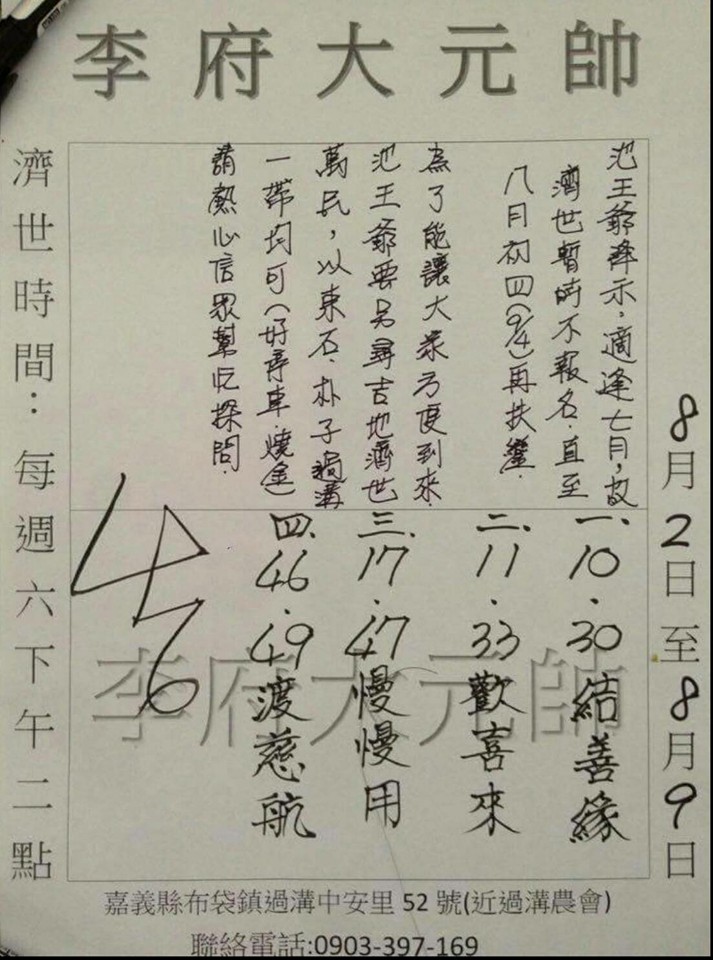 李府大元帥
8月2日至8月9日
池王爺降示,適逢七月,故
濟世暫時不報名.直至
八月初四(9/4)再扶鑾.
為了能讓大眾方便到來.
池王爺要另尋吉地濟世
萬民,以東石.朴子過溝
一帶均可(好停車.燒金)
請熱心信眾幫忙探問.
一、10.30結善緣
二、11.33歡喜來
三、17.47慢慢用
四、46.49渡慈航
46
李府大元帥
濟世時間:每週六下午二點
嘉義縣布袋鎮過溝中安里52號(近過溝農會)
聯絡電話:0903-397-169